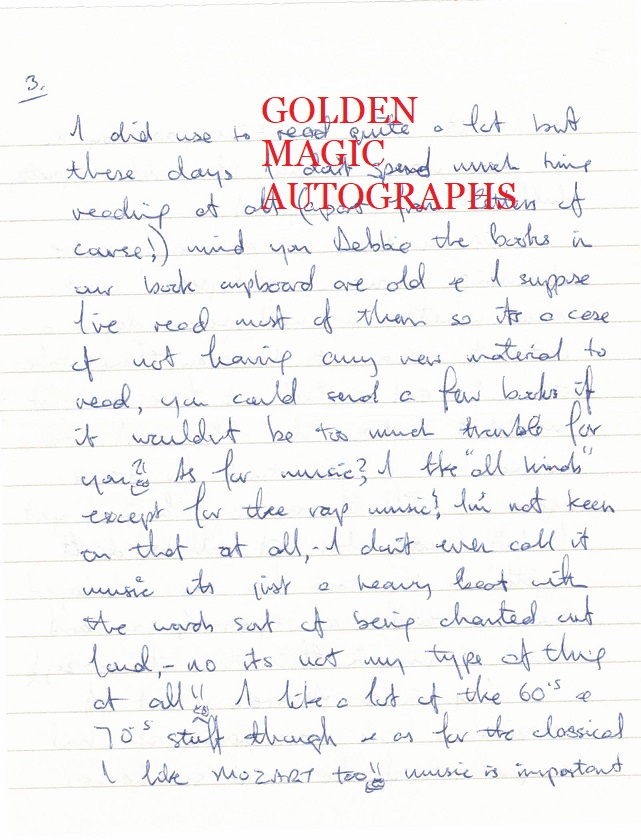 3.
GOLDEN
MAGIC
AUTOGRAPHS
I did use to read quite a lot but
these days I don't spend much time
reading at all (apart from letters of
course!) mind you Debbie the books in
our book cupboard are old & I suppose
I've read most of them so its a case
of not having any new material to
read, you could send a few books if
it wouldn't be too much trouble for
you?! As for music?, I like "all kinds"
except for the rap music!, I'm not keen
on that at all,- I don't even call it
music its just a heavy beat with
the words sort of being chanted out
loud,- no its not my type of thing
at all!! I like a lot of the 60's &
70's stuff though & as for the classical
I like MOZART too!! music is important